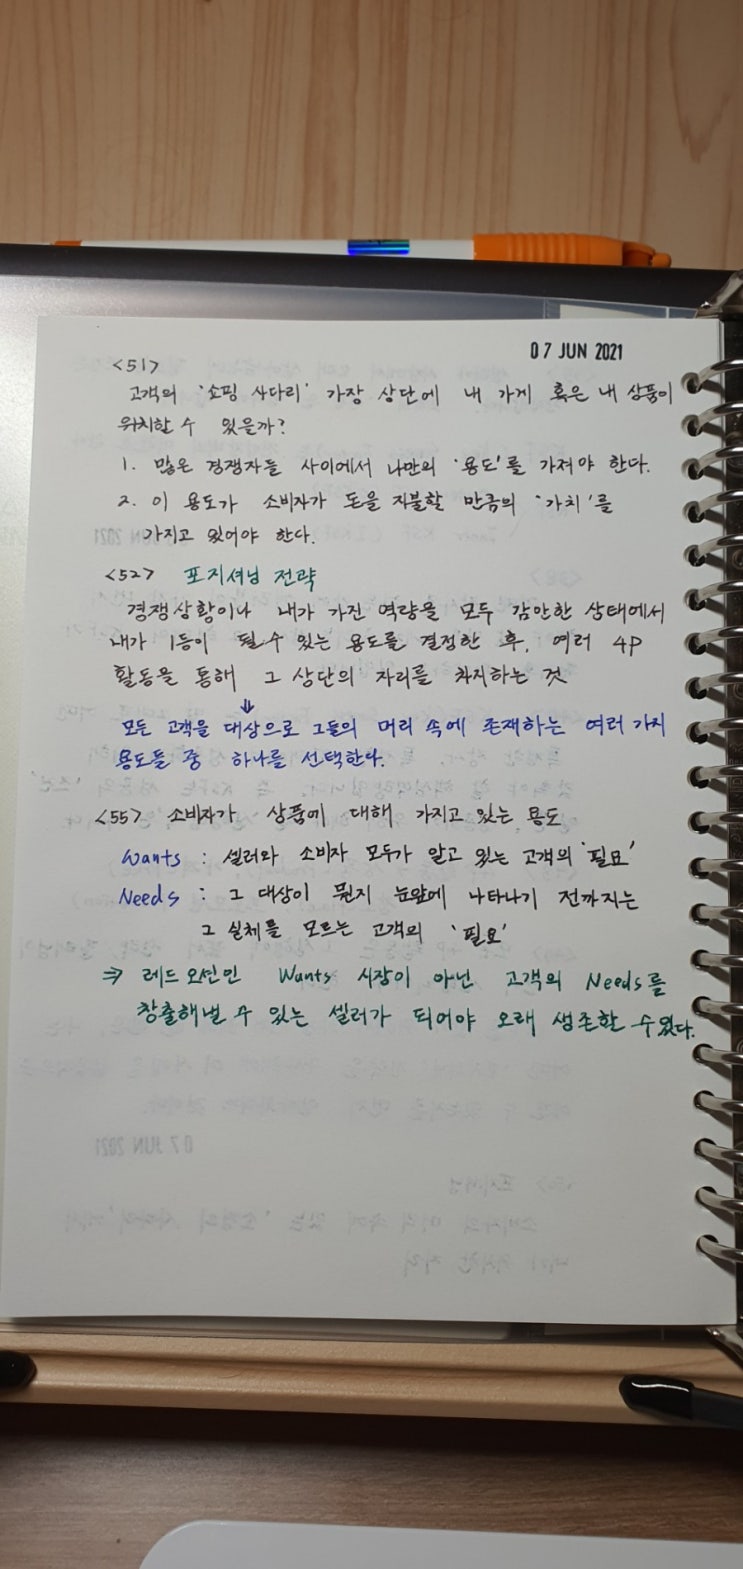 07 JUN 2021
<51>
고객의 '쇼핑 사다리' 가장 상단에 내 가게 혹은 내 상품이
위치할 수 있을까?
1. 많은 경쟁자들 사이에서 나만의 '용도'를 가져야 한다.
2. 이 용도가 소비자가 돈을 지불할 만큼의 '가치'를
가지고 있어야 한다.
<52> 포지셔닝 전략
경쟁상황이나 내가 가진 역량을 모두 감안한 상태에서
내가 1등이 될 수 있는 용도를 결정한 후, 여러 4P
활동을 통해 그 상단의 자리를 차지하는 것
⇓
모든 고객을 대상으로 그들의 머리 속에 존재하는 여러 가지
용도들 중 하나를 선택한다.
<55> 소비자가 상품에 대해 가지고 있는 용도
Wants : 셀러와 소비자 모두가 알고 있는 고객의 '필요'
Needs : 그 대상이 뭔지 눈앞에 나타나기 전까지는
그 실체를 모르는 고객의 '필요'
⇒ 레드오션인 Wants 시장이 아닌 고객의 Needs를
창출해낼 수 있는 셀러가 되어야 오래 생존할 수 있다.